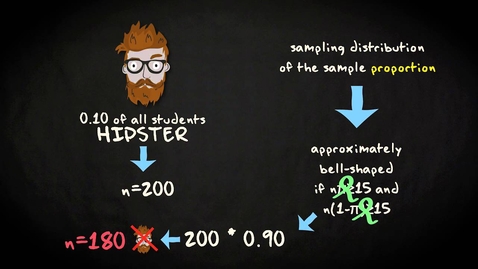 0.10 of all students
HIPSTER
n=200
n=180
200 * 0.90
sampling distribution
of the sample proportion
approximately
bell-shaped
if 15 and
n(1-π 15